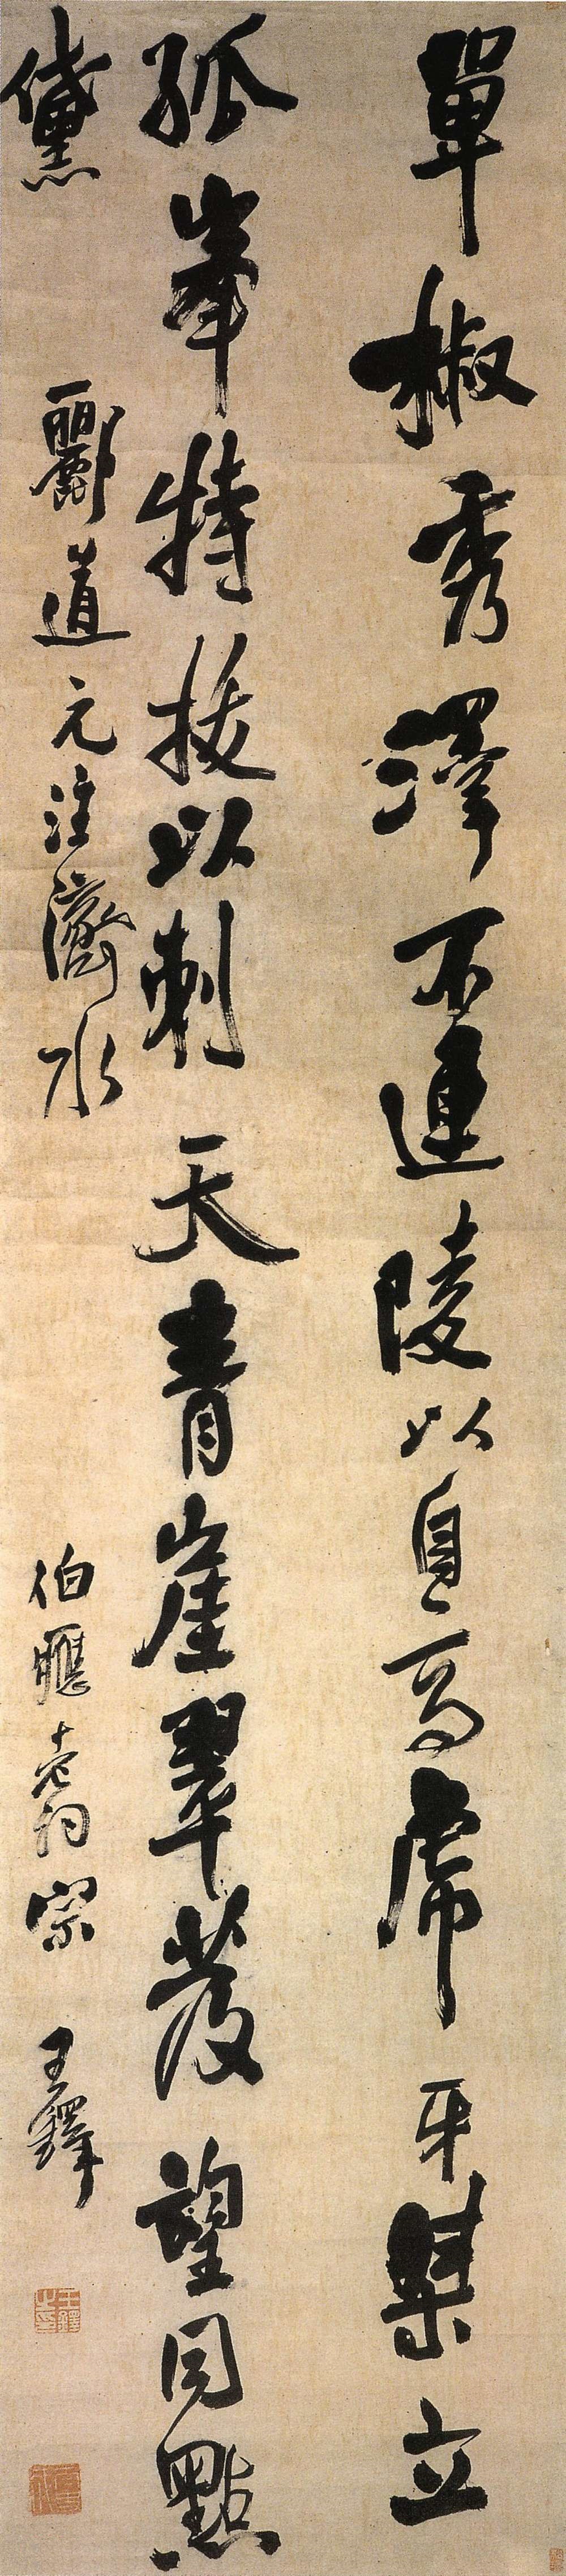 單椒秀澤不連陵以自高虎牙桀立
孤峯特拔以刺天青崖翠發望同點
黛 酈道元注濟水 伯應老詞宗 王鐸
王鐸之印